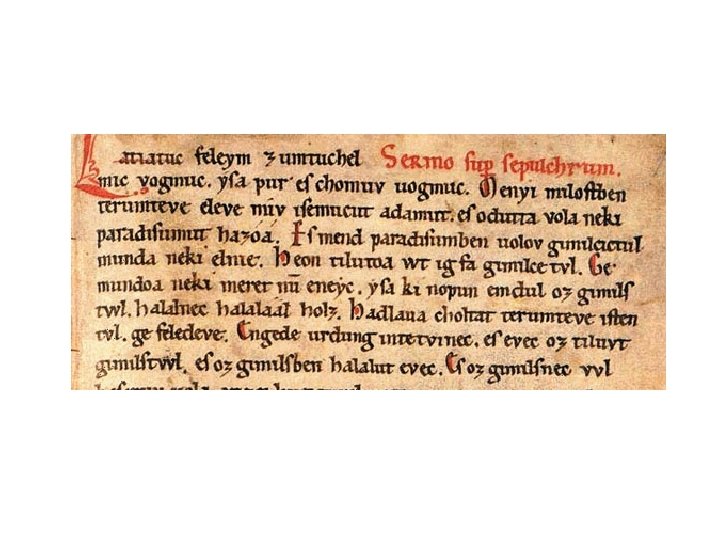 Latiatuc feleym zumtuchel Sermo ſup ſepulchrum.
mic vogmuc. yſa pur eſ chomuv uogmuc. Menyi miloſtben
terumteve eleve miv iſemucut adamut. eſ odutta vola neki
paradiſumut hazoa. Eſ mend paradiſumben uolov gimilcictul
munda neki elnie. Heon tilutoa wt ig fa gimilce tvl. Ge
mundoa neki meret nū eneyc. yſa ki nopun emdul oz gimilſ
twl. halalnec halalaal holz. Hadlaua choltat terumteve iſten
tvl. ge feledeve. Engede urdung intetvinec. eſ evec oz tiluvt
gimilſtwl. eſ oz gimilſben halalut evec. Eſ oz gimilſnec vvl